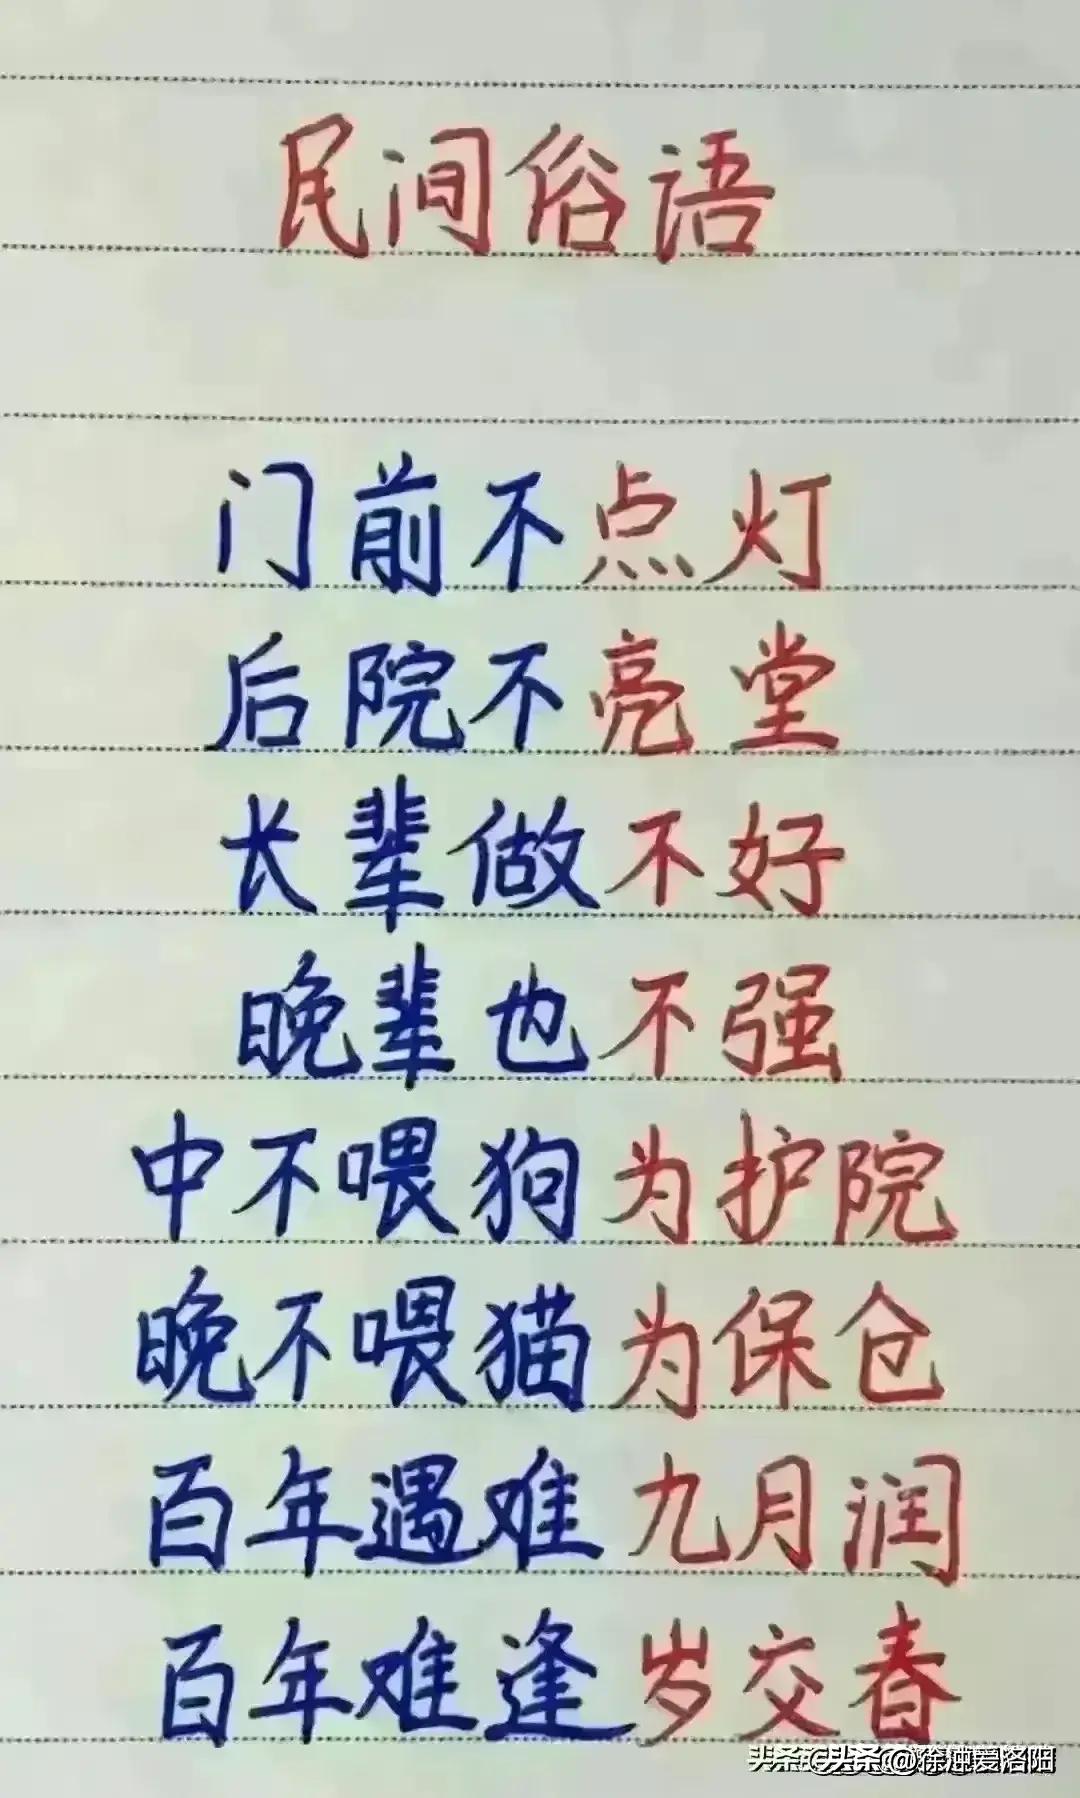 民间俗语
门前不点灯
后院不亮堂
长辈做不好
晚辈也不强
中不喂狗为护院
晚不喂猫为保仓
百年遇难九月润
百年难逢岁交春
头条@徐沖爱洛阳